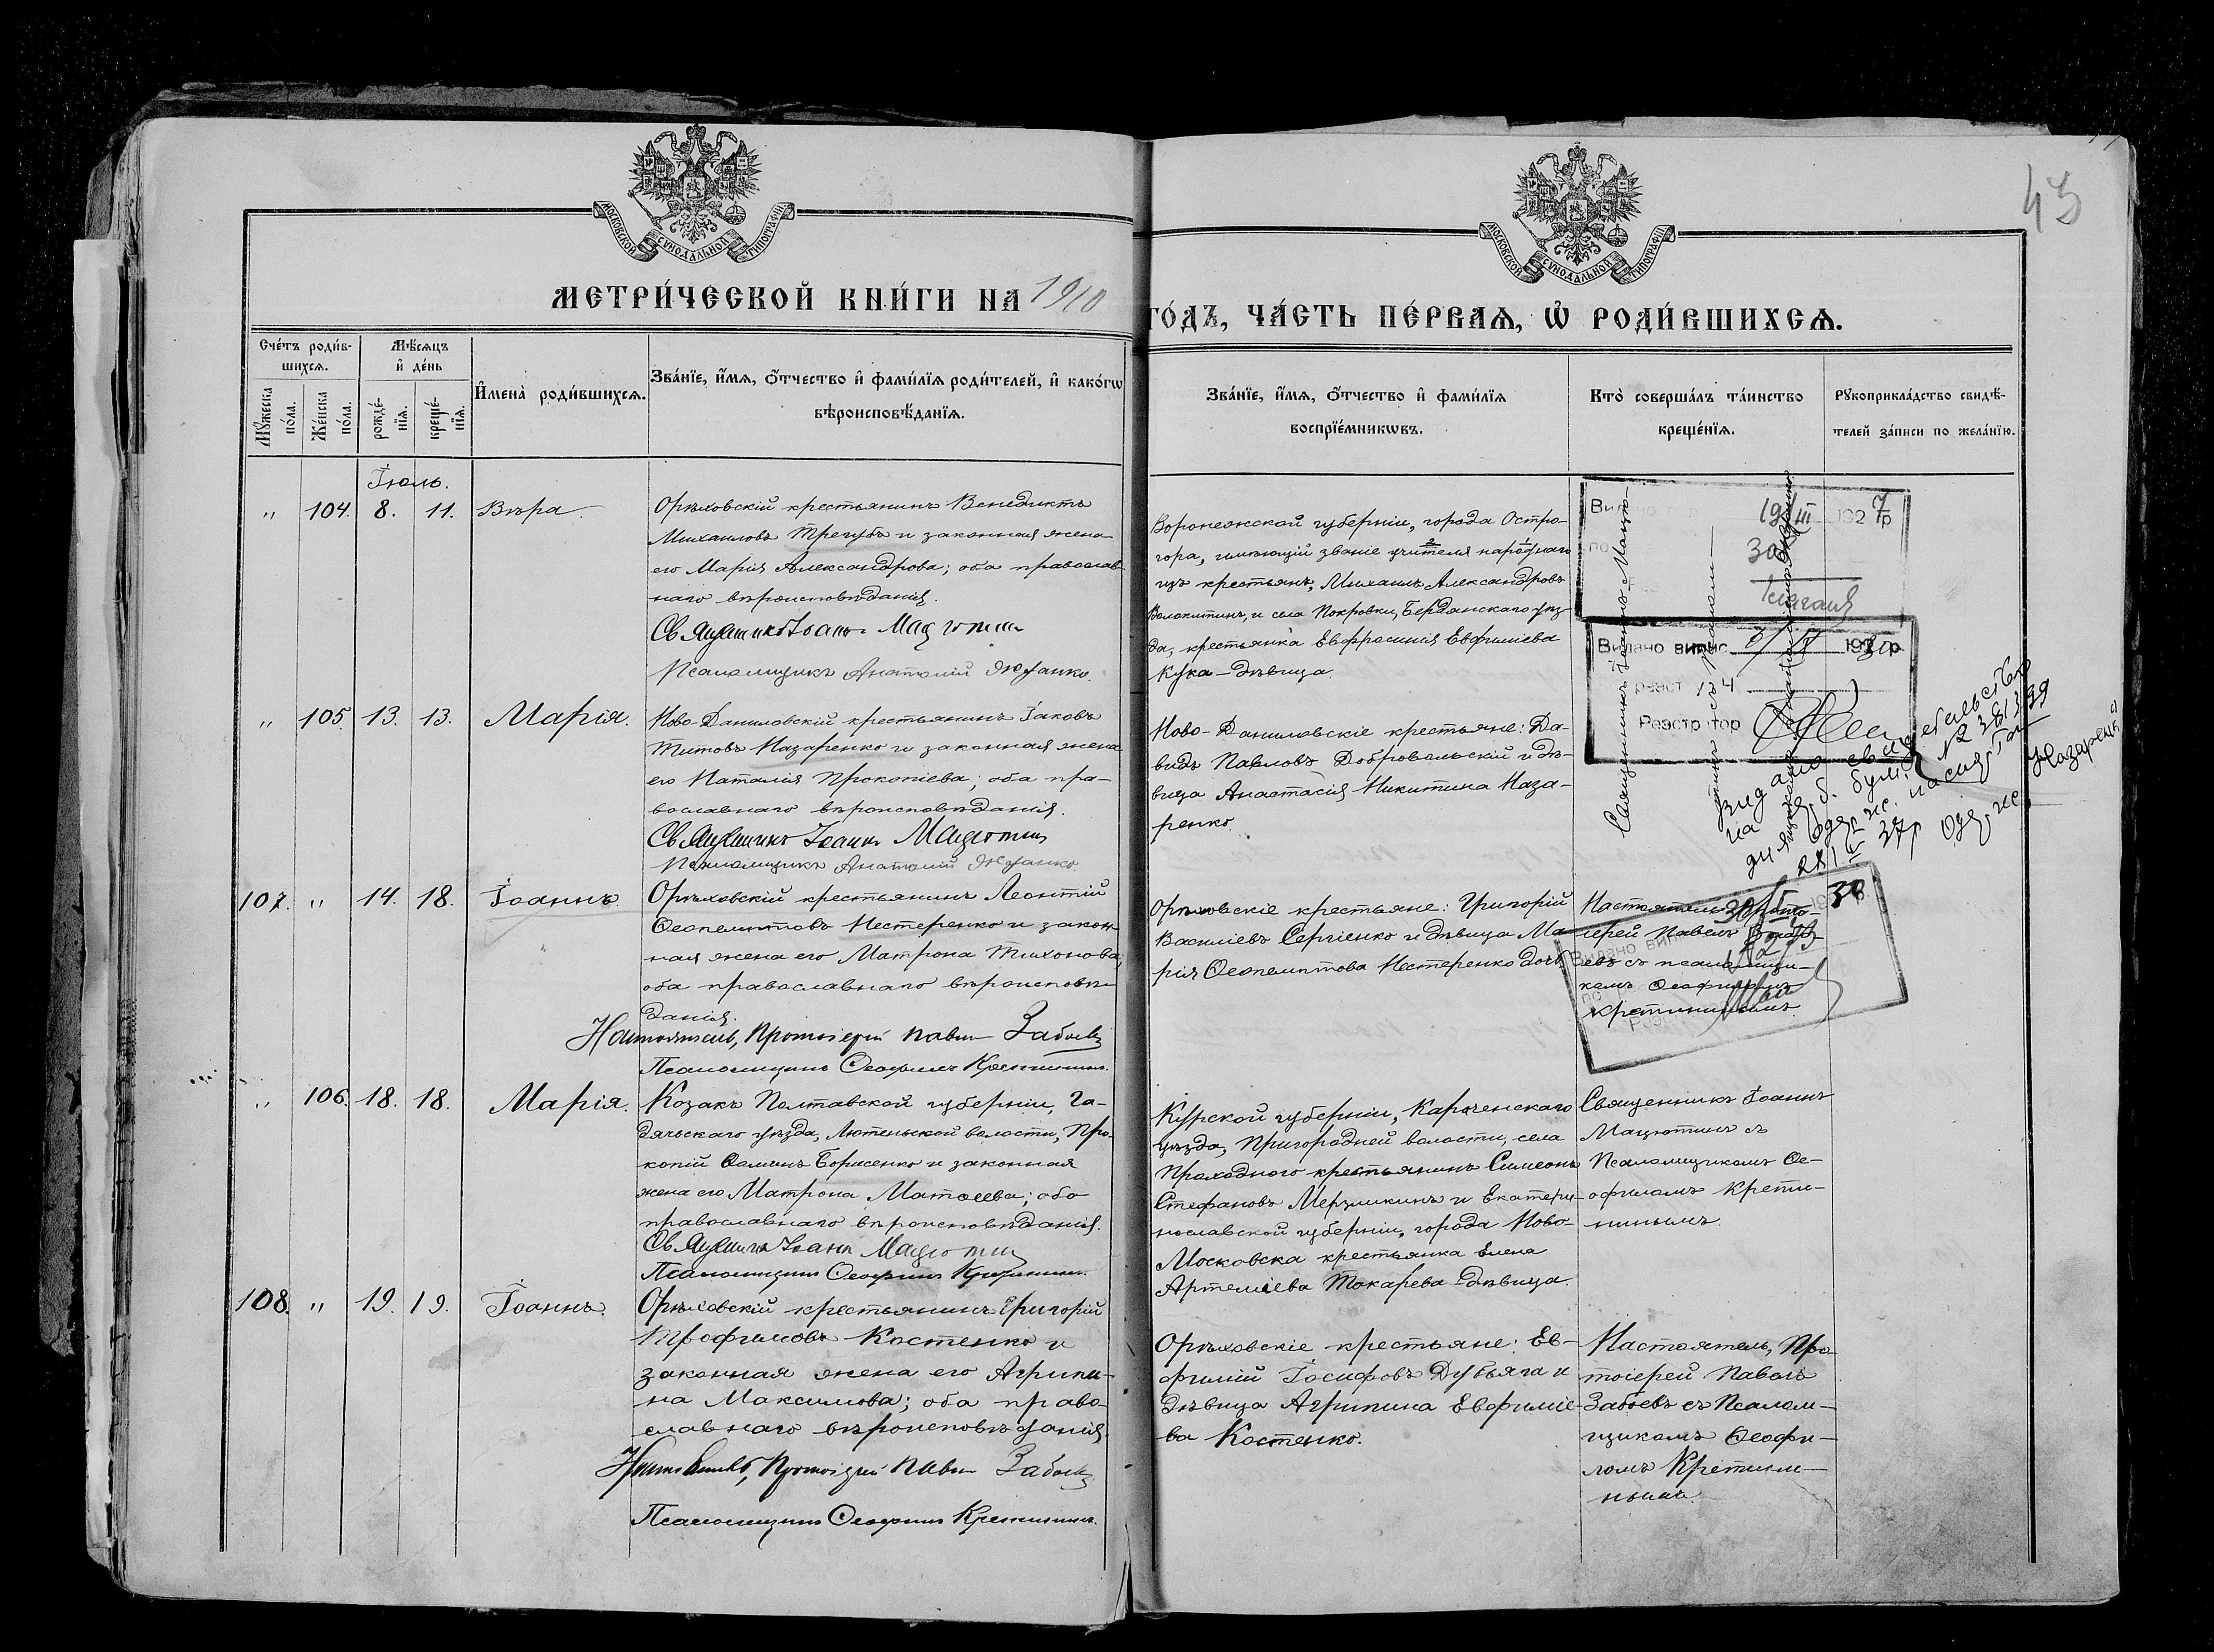 43
МОСКОВСКОЙ СУНОДАЛЬНОЙ ТИПОГРАФІИ
МОСКОВСКОЙ СУНОДАЛЬНОЙ ТИПОГРАФІИ
МЕТРИ́ЧЕСКОЙ КНИ́ГИ НА 1910 ГО́ДЪ, ЧА́СТЬ ПЕ́РВАѦ, Ѡ҆ РОДИ́ВШИХСѦ.
Сче́тъ роди́в-
шихсѧ.
Мꙋ́жеска по́ла.
Же́нска по́ла.
Мѣ́сяцъ
и҆ де́нь
рожде́-
нїѧ.
креще́-
нїѧ.
И҆мена̀ роди́вшихсѧ.
Зва́нїе, и҆́мѧ, ѻ҆́тчество и҆ фами́лїѧ роди́телей, и҆ како́гѡ
вѣроисповѣ́данїѧ.
Зва́нїе, и҆́мѧ, ѻ҆́тчество и҆ фами́лїѧ
воспрїе́мникѡвъ.
Кто̀ соверша́лъ та́инство
креще́нїѧ.
Рꙋкоприкла́дство свидѣ́-
телей за́писи по жела́нїю.
Іюль.
" 104. 8. 11. Вѣра.
Орѣховскій крестьянинъ Венедиктъ
Михаиловъ Трегубъ и законная жена
его Марія Александрова; оба православ-
наго вѣроисповѣданія.
Священникъ Іоаннъ Мацютинъ
Псаломщикъ Анатолій
Воронежской губерніи, города Остро-
гора, имѣющій званіе учителя народнаго
изъ крестьянъ, Михаилъ Александровъ
Волокитинъ, и села Покровки, Бердянскаго уѣз-
да, крестьянка Евфросинія Евфиміева
Кука - дѣвица.
19/III 1927р
Видано випис 193 р
реэст 124
Реэстратор
" 105. 13. 13. Марія.
Ново-Даниловскій крестьянинъ Іаковъ
Титовъ Назаренко и законная жена
его Наталія Прокопіева; оба пра-
вославнаго вѣроисповѣданія.
Священникъ Іоаннъ Мацютинъ
Псаломщикъ Анатолій
Ново-Даниловскіе крестьяне: Да-
видъ Павловъ Добровольскій и дѣ-
вица Анастасія Никитина Наза-
ренко.
107. " 14. 18. Іоаннъ
Орѣховскій крестьянинъ Леонтій
Ѳеопемптовъ Нестеренко и закон-
ная жена его Матрона Тихонова,
оба православнаго вѣроисповѣ-
данія.
Настоятель, Протоіерей Павелъ Забоевъ
Псаломщикъ Ѳеофилъ Кретининъ.
Орѣховскіе крестьяне: Григорій
Василіевъ Сергіенко и дѣвица Ма-
рія Ѳеопемптова Нестеренко дочь
Настоятель Прото-
іерей Павелъ Забо-
евъ съ псаломщи-
комъ Ѳеофиломъ
Кретининымъ.
" 106. 18. 18. Марія.
Козакъ Полтавской губерніи, Га-
дячьскаго уѣзда, Лютеньской волости, Про-
копій Ѳоминъ Борисенко и законная
жена его Матрона Матѳеева; оба
православнаго вѣроисповѣданія.
Священникъ Іоаннъ Мацютинъ
Псаломщикъ Ѳеофилъ Кретининъ.
Курской губерніи, Кароченскаго
уѣзда, Пригородней волости, села
Проходного крестьянинъ Симеонъ
Стефановъ Мерзликинъ и Екатери-
нославской губерніи, города Ново-
Московска крестьянка Елена
Артеміева Токарева - дѣвица.
Священникъ Іоаннъ
Мацютинъ съ
Псаломщикомъ Ѳе-
офиломъ Крети-
нинымъ.
108. " 19. 19. Іоаннъ.
Орѣховскій крестьянинъ Григорій
Трофимовъ Костенко и
законная жена его Агрипи-
на Максимова; оба право-
славнаго вѣроисповѣданія.
Настоятель, Протоіерей Павелъ Забоевъ
Псаломщикъ Ѳеофилъ Кретининъ.
Орѣховскіе крестьяне: Ев-
фимій Іосифовъ Дубьяга и
дѣвица Агрипина Евфиміе-
ва Костенко.
Настоятель, Про-
тоіерей Павелъ
Забоевъ съ Псалом-
щикомъ Ѳеофи-
ломъ Кретини-
нымъ.